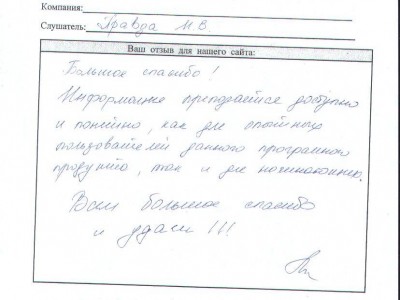 Компания:
Слушатель: Правда М.В.
Ваш отзыв для нашего сайта:
Большое спасибо!
Информация преподается доступно
и понятно, как для опытных
пользователей данного програмного
продукта, так и для начинающих.
Всем большое спасибо
и удачи!!!